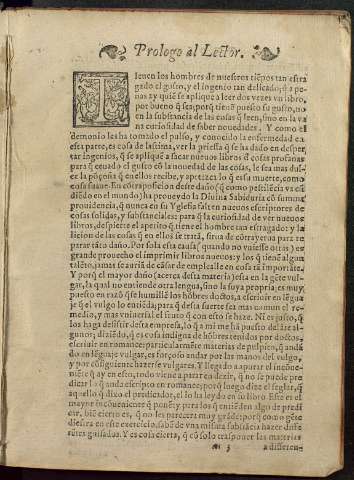 Prologo al Lector.
TIenen los hombres de nuestros tiẽpos tan estra
gado el gusto, y el ingenio tan delicado; q̃ a pe
nas ay quiẽ se aplique a leer dos vezes vn libro,
por bueno q̃ sea; porq̃ tienẽ puesto su gusto, no
en la substancia de las cosas q̃ leen, sino en la va
na curiosidad de saber nouedades. Y como el
demonio les ha tomado el pulso, y conocido la enfermedad en
esta parte, es cosa de lastima, ver la priessa q̃ se ha dado en desper
tar ingenios, q̃ se apliquẽ a sacar nueuos libros de cosas profanas
para q̃ ceuado el gusto cõ la nouedad de las cosas, le sea mas dul-
ce la põçoña q̃ en ellos recibe, y apetezca lo q̃ es su muerte, como
cosa suaue. En cõtraposiciõ deste daño (q̃ como pestilẽcia va cũ
diẽdo en el mundo) ha proueydo la Diuina Sabiduria cõ summa
prouidencia, q̃ nunca en su Yglesia faltẽ nueuos escriptores de
cosas solidas, y substanciales: para q̃ la curiosidad de ver nueuos
libros, despierte el apetito, q̃ tienẽ el hombre tan estragado: y la
licion de las cosas q̃ en ellos se tratã, sirua de cõtrayerua para re
parar tãto daño. Por sola esta causa (quando no vuiesse otras) es
grande prouecho el imprimir libros nueuos: y los q̃ tienẽ algun
talẽto, jamas se auriã de cãsar de emplealle en cosa tã importãte.
Y porq̃ el mayor daño (acerca desta materia) esta en la gẽte vul-
gar, la qual no entiende otra lengua, sino la suya propria; es muy
puesto en razõ q̃ se humillẽ los hõbres doctos, a escriuir en lẽgua
je q̃ el vulgo lo entiẽda; para q̃ desta suerte sea mas comun el re-
medio, y mas vniuersal el fruto q̃ con esto se haze. Ni es justo, q̃
los haga desistir desta empresa, lo q̃ a mi me hã puesto delãte al-
gunos; diziẽdo, q̃ es cosa indigna de hõbres tenidos por doctos,
escriuir en romance: particularmẽte materias de pulpito, q̃ andã
do en lẽguaje vulgar, es forçoso andar por las manos del vulgo,
y por cõsiguiente hazerse vulgares. Y llegando a apurar el incõue-
niẽte q̃ ay en esto, todo viene a parar en dezir, q̃ no se puede pre
dicar lo q̃ anda escripto en romance; porq̃ luego dize el seglar, q̃
aquello q̃ dixo el predicador, el lo ha leydo en su libro. Este es el
mayor incõueniente q̃ ponẽ: y para los q̃ entiẽden algo de predi
car, biẽ cierto es, q̃ no les parecera muy grãde: porq̃ como gẽte
diestra en este exercicio, sabẽ de vna mistura substãcia hazer diffe
rẽtes guisados. Y es cosa cierta, q̃ cõ solo trasponer las materias
¶ 3 a differen-